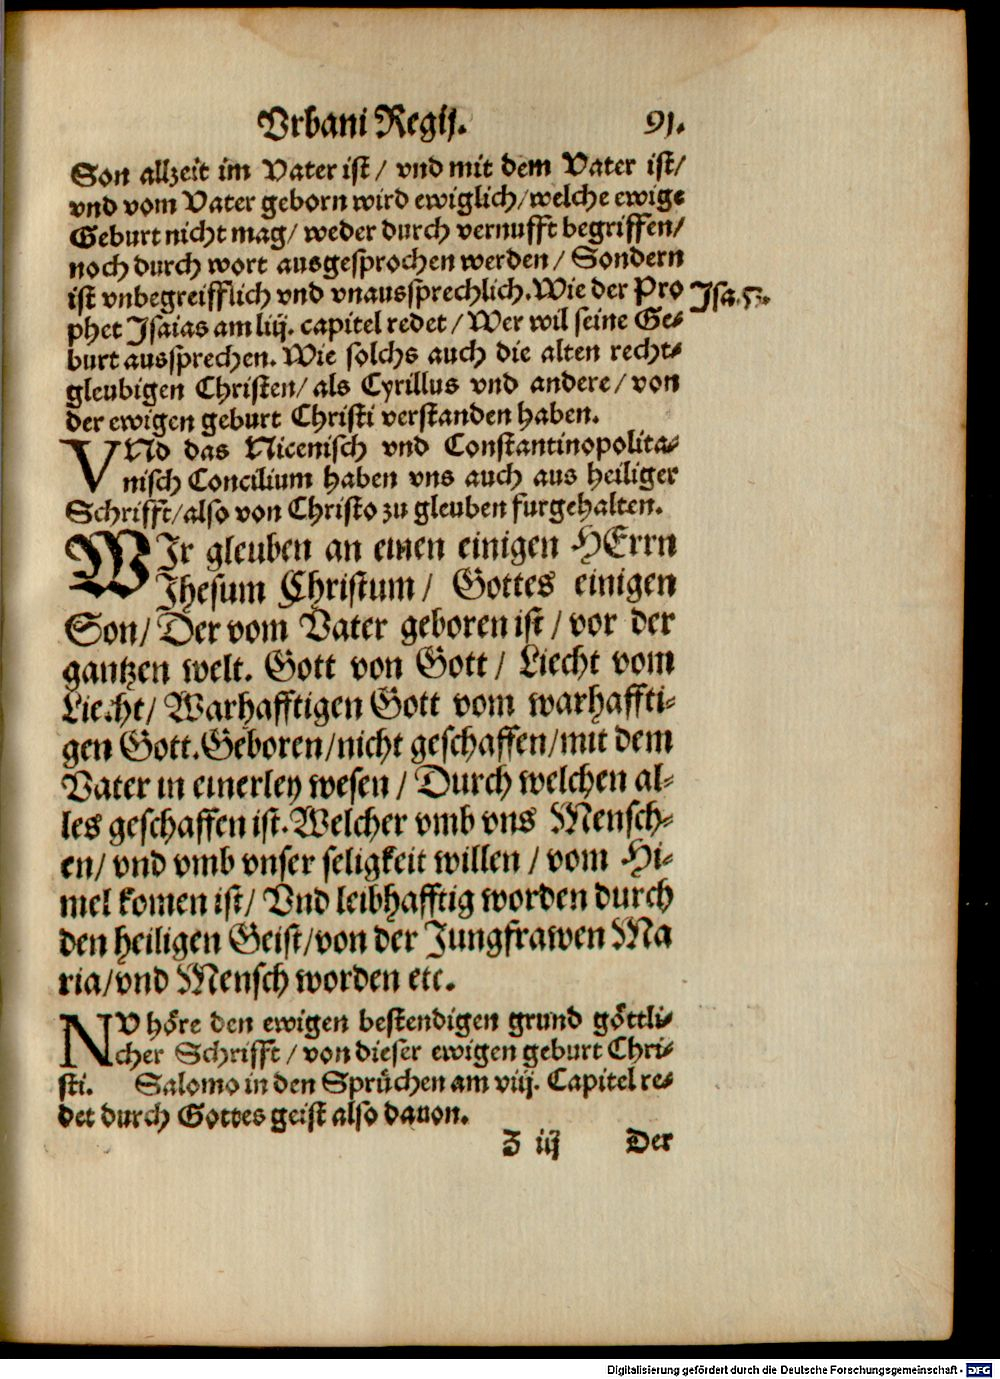 Vrbani Regij. 91.
Son allzeit im Vater ist / vnd mit dem Vater ist/
vnd vom Vater geborn wird ewiglich/welche ewige
Geburt nicht mag/ weder durch vernufft begriffen/
noch durch wort ausgesprochen werden/ Sondern
ist vnbegreifflich vnd vnaussprechlich.Wie der Pro
Isa.53.
phet Isaias am liij. capitel redet / Wer wil seine Ge-
burt aussprechen. Wie solchs auch die alten recht-
gleubigen Christen/ als Cyrillus vnd andere/ von
der ewigen geburt Christi verstanden haben.
VNd das Nicenisch vnd Constantinopolita-
nisch Concilium haben vns auch aus heiliger
Schrifft/also von Christo zu gleuben furgehalten.
WIr gleuben an einen einigen HErrn
Ihesum Christum/ Gottes einigen
Son/ Der vom Vater geboren ist / vor der
gantzen welt. Gott von Gott/ Liecht vom
Liecht/ Warhafftigen Gott vom warhaffti-
gen Gott.Geboren/nicht geschaffen/mit dem
Vater in einerley wesen / Durch welchen al-
les geschaffen ist.Welcher vmb vns Mensch-
en/ vnd vmb vnser seligkeit willen / vom Hi-
mel komen ist/ Vnd leibhafftig worden durch
den heiligen Geist/von der Jungfrawen Ma
ria/vnd Mensch worden etc.
NV höre den ewigen bestendigen grund göttli-
cher Schrifft / von dieser ewigen geburt Chri-
sti. Salomo in den Sprüchen am viij. Capitel re-
det durch Gottes geist also dauon.
Z iij Der
Digitalisierung gefördert durch die Deutsche Forschungsgemeinschaft - DFG